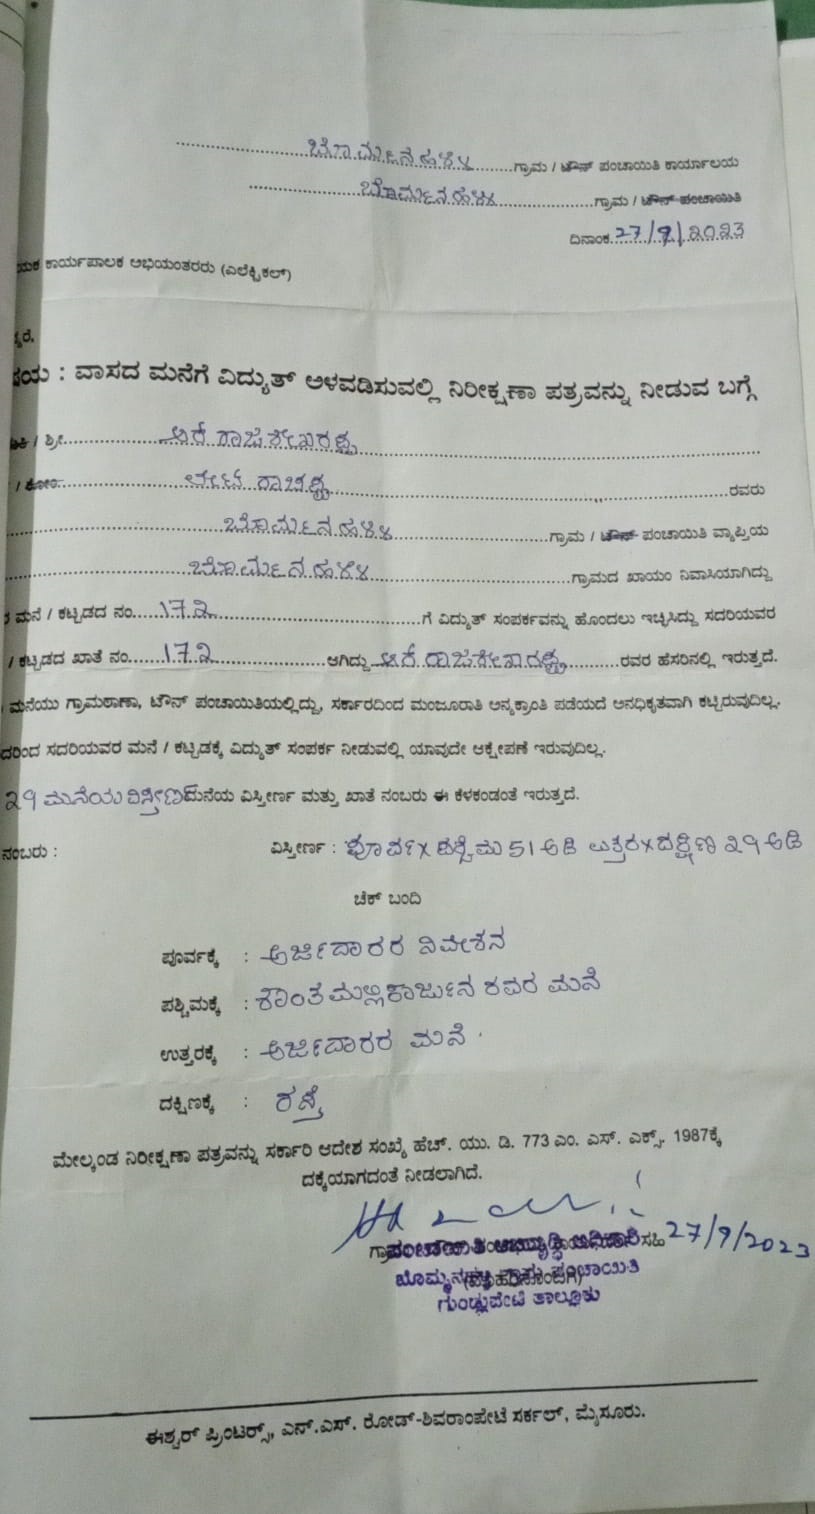 ಬೊಮ್ಮನಹಳ್ಳಿ ಗ್ರಾಮ / ಟೌನ್ ಪಂಚಾಯಿತಿ ಕಾರ್ಯಾಲಯ
ಬೊಮ್ಮನಹಳ್ಳಿ ಗ್ರಾಮ / ಟೌನ್ ಪಂಚಾಯಿತಿ
ದಿನಾಂಕ 27/9/2023
ಯಕ ಕಾರ್ಯಪಾಲಕ ಅಭಿಯಂತರರು (ಎಲೆಕ್ಟ್ರಿಕಲ್)
ರೆ.
ಷಯ : ವಾಸದ ಮನೆಗೆ ವಿದ್ಯುತ್ ಅಳವಡಿಸುವಲ್ಲಿ ನಿರೀಕ್ಷಣಾ ಪತ್ರವನ್ನು ನೀಡುವ ಬಗ್ಗೆ
/ ಶ್ರೀ ಆರ್ ರಾಜಶೇಖರಪ್ಪ
/ ಕೋಂ ಲೇಟ್ ರಾಚಪ್ಪ ರವರು
ಬೊಮ್ಮನಹಳ್ಳಿ ಗ್ರಾಮ / ಟೌನ್ ಪಂಚಾಯಿತಿ ವ್ಯಾಪ್ತಿಯ
ಬೊಮ್ಮನಹಳ್ಳಿ ಗ್ರಾಮದ ಖಾಯಂ ನಿವಾಸಿಯಾಗಿದ್ದು
ಮನೆ / ಕಟ್ಟಡದ ನಂ. 172 ಗೆ ವಿದ್ಯುತ್ ಸಂಪರ್ಕವನ್ನು ಹೊಂದಲು ಇಚ್ಛಿಸಿದ್ದು ಸದರಿಯವರ
/ ಕಟ್ಟಡದ ಖಾತೆ ನಂ. 172 ಆಗಿದ್ದು ಆರ್ ರಾಜಶೇಖರಪ್ಪ ರವರ ಹೆಸರಿನಲ್ಲಿ ಇರುತ್ತದೆ.
ಮನೆಯು ಗ್ರಾಮಠಾಣಾ, ಟೌನ್ ಪಂಚಾಯಿತಿಯಲ್ಲಿದ್ದು, ಸರ್ಕಾರದಿಂದ ಮಂಜೂರಾತಿ ಅನ್ಯಕ್ರಾಂತಿ ಪಡೆಯದೆ ಅನಧಿಕೃತವಾಗಿ ಕಟ್ಟಿರುವುದಿಲ್ಲ.
ದರಿಂದ ಸದರಿಯವರ ಮನೆ / ಕಟ್ಟಡಕ್ಕೆ ವಿದ್ಯುತ್ ಸಂಪರ್ಕ ನೀಡುವಲ್ಲಿ ಯಾವುದೇ ಆಕ್ಷೇಪಣೆ ಇರುವುದಿಲ್ಲ.
ಮನೆಯ ವಿಸ್ತೀರ್ಣ ಮನೆಯ ವಿಸ್ತೀರ್ಣ ಮತ್ತು ಖಾತೆ ನಂಬರು ಈ ಕೆಳಕಂಡಂತೆ ಇರುತ್ತದೆ.
ನಂಬರು : ವಿಸ್ತೀರ್ಣ : ಪೂರ್ವ x ಪಶ್ಚಿಮ 51 ಅಡಿ ಉತ್ತರ x ದಕ್ಷಿಣ 29 ಅಡಿ
ಚೆಕ್ ಬಂದಿ
ಪೂರ್ವಕ್ಕೆ : ಅರ್ಜಿದಾರರ ನಿವೇಶನ
ಪಶ್ಚಿಮಕ್ಕೆ : ಶಾಂತಮಲ್ಲಿಕಾರ್ಜುನ ರವರ ಮನೆ
ಉತ್ತರಕ್ಕೆ : ಅರ್ಜಿದಾರರ ಮನೆ
ದಕ್ಷಿಣಕ್ಕೆ : ರಸ್ತೆ
ಮೇಲ್ಕಂಡ ನಿರೀಕ್ಷಣಾ ಪತ್ರವನ್ನು ಸರ್ಕಾರಿ ಆದೇಶ ಸಂಖ್ಯೆ ಹೆಚ್. ಯು. ಡಿ. 773 ಎಂ. ಎಸ್. ಎಕ್ಸ್. 1987ಕ್ಕೆ
ದಕ್ಕೆಯಾಗದಂತೆ ನೀಡಲಾಗಿದೆ.
ಪಂಚಾಯಿತಿ ಅಭಿವೃದ್ಧಿ ಅಧಿಕಾರಿ ಸಹಿ 27/9/2023
ಬೊಮ್ಮನಹಳ್ಳಿ ಗ್ರಾಮ ಪಂಚಾಯಿತಿ
ಗುಂಡ್ಲುಪೇಟೆ ತಾಲ್ಲೂಕು
ಈಶ್ವರ್ ಪ್ರಿಂಟರ್ಸ್, ಎನ್.ಎಸ್. ರೋಡ್-ಶಿವರಾಂಪೇಟೆ ಸರ್ಕಲ್, ಮೈಸೂರು.